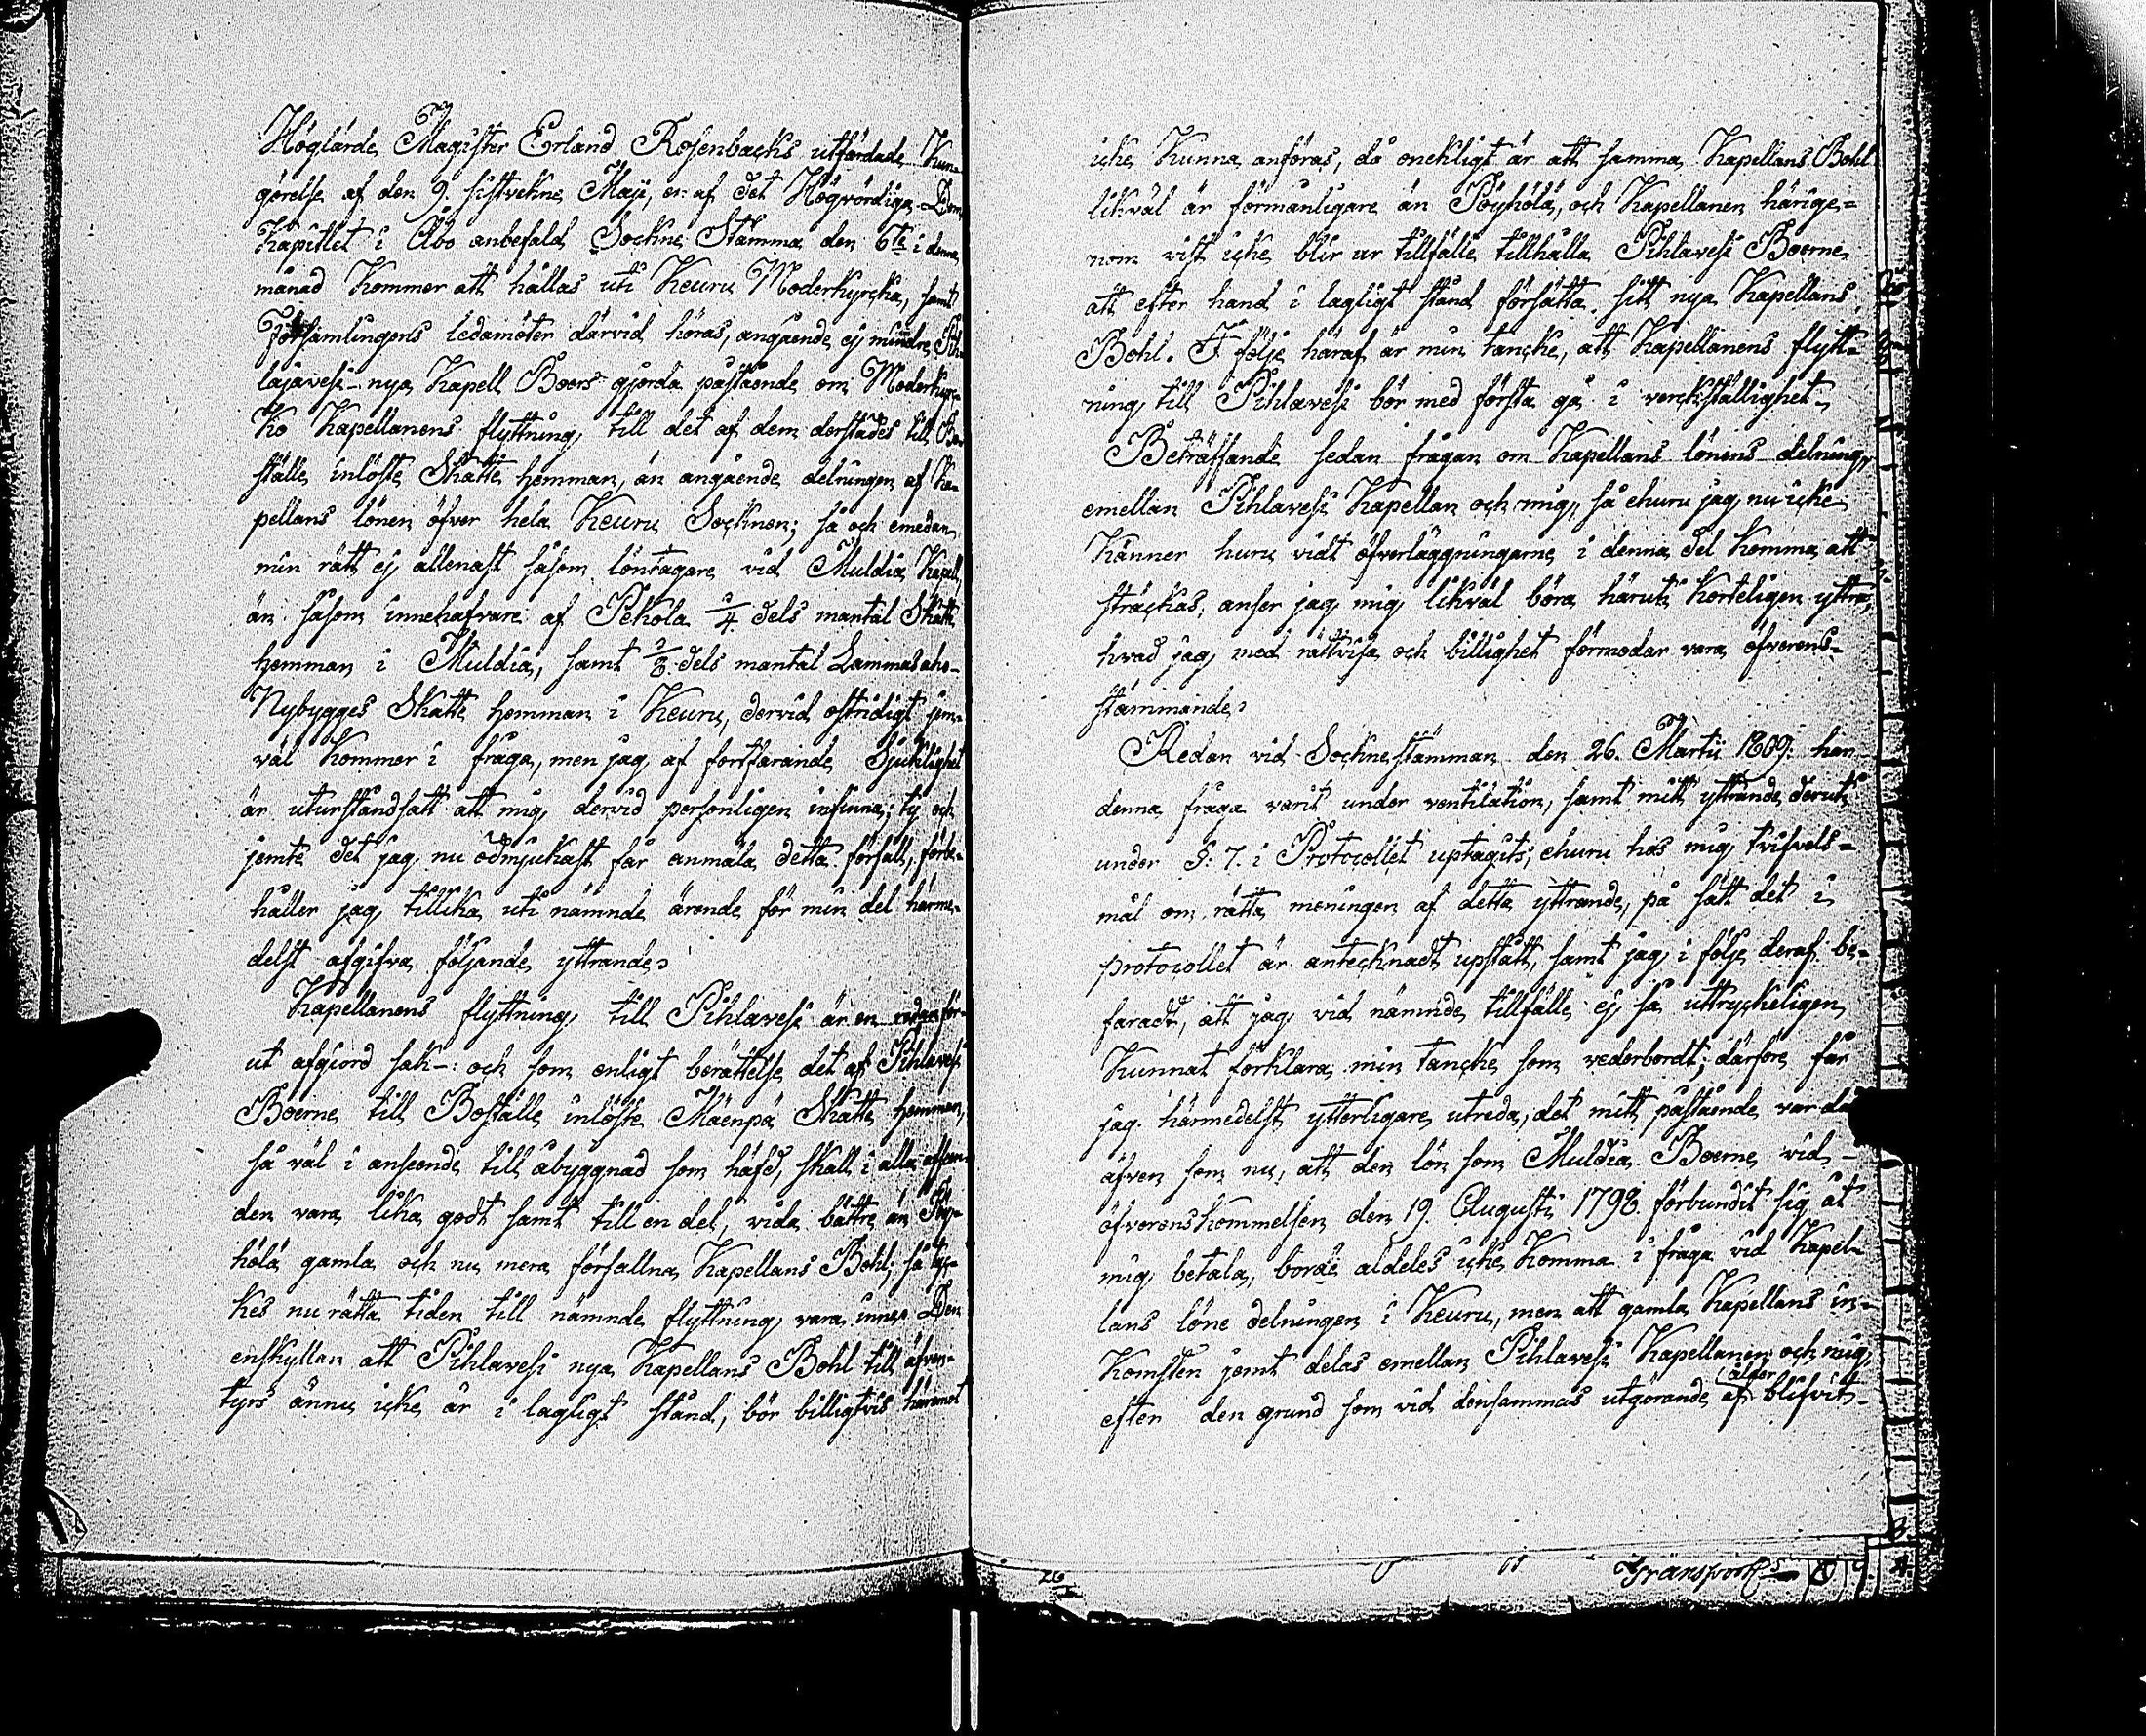 Höglärde Magister Erland Rosenbacks utfärdade Kun-
görelse af den 9. sistvekne Maji, en af Det Högvördiga Dom
Kapitlet i Åbo anbefald Sockne Stämma den 6te i denne
månad kommer att hållas uti Keuru Moderkyrcka, samt
Församlingens ledamöter därvid höras, angående ej mindre Pih-
lajavesi nya Kapell Boers gjorda påstående om Moderkyrc-
ko Kapellanens flyttning till det af dem derstädes till Bo-
ställe inlöste Skatte hemman, än angående delningen af Ka-
pellans lönen öfver hela Keuru Socknen; så och emedan
min rätt ej allenast såsom löntagare vid Muldia Kapell,
än såsom innehafvare af Pekola 3/4 dels mantal Skatte
hemman i Muldia, samt 1/3 dels mantal Lammasaho-
Nybygges Skatte hemman i Keuru, dervid ostridigt jem-
väl kommer i fråga, men jag af fortfarande Sjuklighet
är uturståndsatt att mig dervid personligen infinna; ty och
jemte det jag nu ödmjukast får anmäla detta förfall, förbe-
håller jag tillika uti nämnde ärende för min del härme-
delst afgifva följande yttrande:
Kapellanens flyttning till Pihlavesi är en redan för-
ut afgjord sak: och som enligt berättelse det af Pihlavesi
Boerne till Boställe inlöste Mäenpä Skatte hemman,
så väl i anseende till åbyggnad som häfd, skall i alla afseen-
den vara lika godt samt till en del, vida bättre än Pöy-
hölä gamla och nu mera förfallna Kapellans Bohl; så tyc-
kes nu rätta tiden till nämnde flyttning vara inne. Den
enskyllan att Pihlavesi nya Kapellans Bohl till äfven-
tyrs ännu icke är i lagligt stånd, bör billigtvis häremot
icke kunna anföras, då onekligt är att samma Kapellans Bohl
likväl är förmånligare än Pöyhölä, och Kapellanen härige-
nom vist icke blir ur tillfälle tillhålla Pihlavesi Boerne
att efter hand i lagligt stånd försätta sitt nya Kapellans
Bohl. I följe häraf är min tancke, att Kapellanens flytt-
ning till Pihlavesi bör med första gå i verckställighet.
Beträffande sedan frågan om Kapellans lönens delning
emellan Pihlavesi Kapellan och mig, så ehuru jag nu icke
känner huru vidt öfverläggningarne i denna del komma att
sträckas, anser jag mig likväl böra häruti korteligen yttra,
hvad jag med rättvisa och billighet förmodar vara öfverens-
stämmande:
Redan vid Sockne stämman den 26. Martii 1809. har
denna fråga varit under ventilation, samt mitt yttrande deruti
under §. 7. i Protocollet uptagits; ehuru hos mig tvifvels-
mål om rätta meningen af detta yttrande, på sätt det i
protocollet är antecknadt upstått, samt jag i följe deraf be-
faradt, att jag vid nämnde tillfälle ej så uttryckeligen
kunnat förklara min tancke som vederbordt; därföre får
jag härmedelst ytterligare utreda, det mitt påstående var då
äfven som nu, att den lön som Muldia Boerne vid
öfverenskommelsen den 19. Augusti 1792. förbundit sig åt
mig betala, borde aldeles icke komma i fråga vid Kapel-
lans löne delningen i Keuru, men att gamla Kapellans in-
komsten jemt delas emellan Pihlavesi Kapellanen och mig,
efter den grund som vid densammas utgörande af ålder blifvit
26
Transport